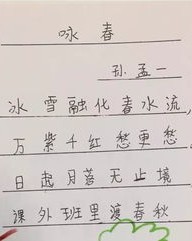 咏春
孙孟一
冰雪融化春水流,
万紫千红愁更愁
日起月落无止境
课外班里渡春秋